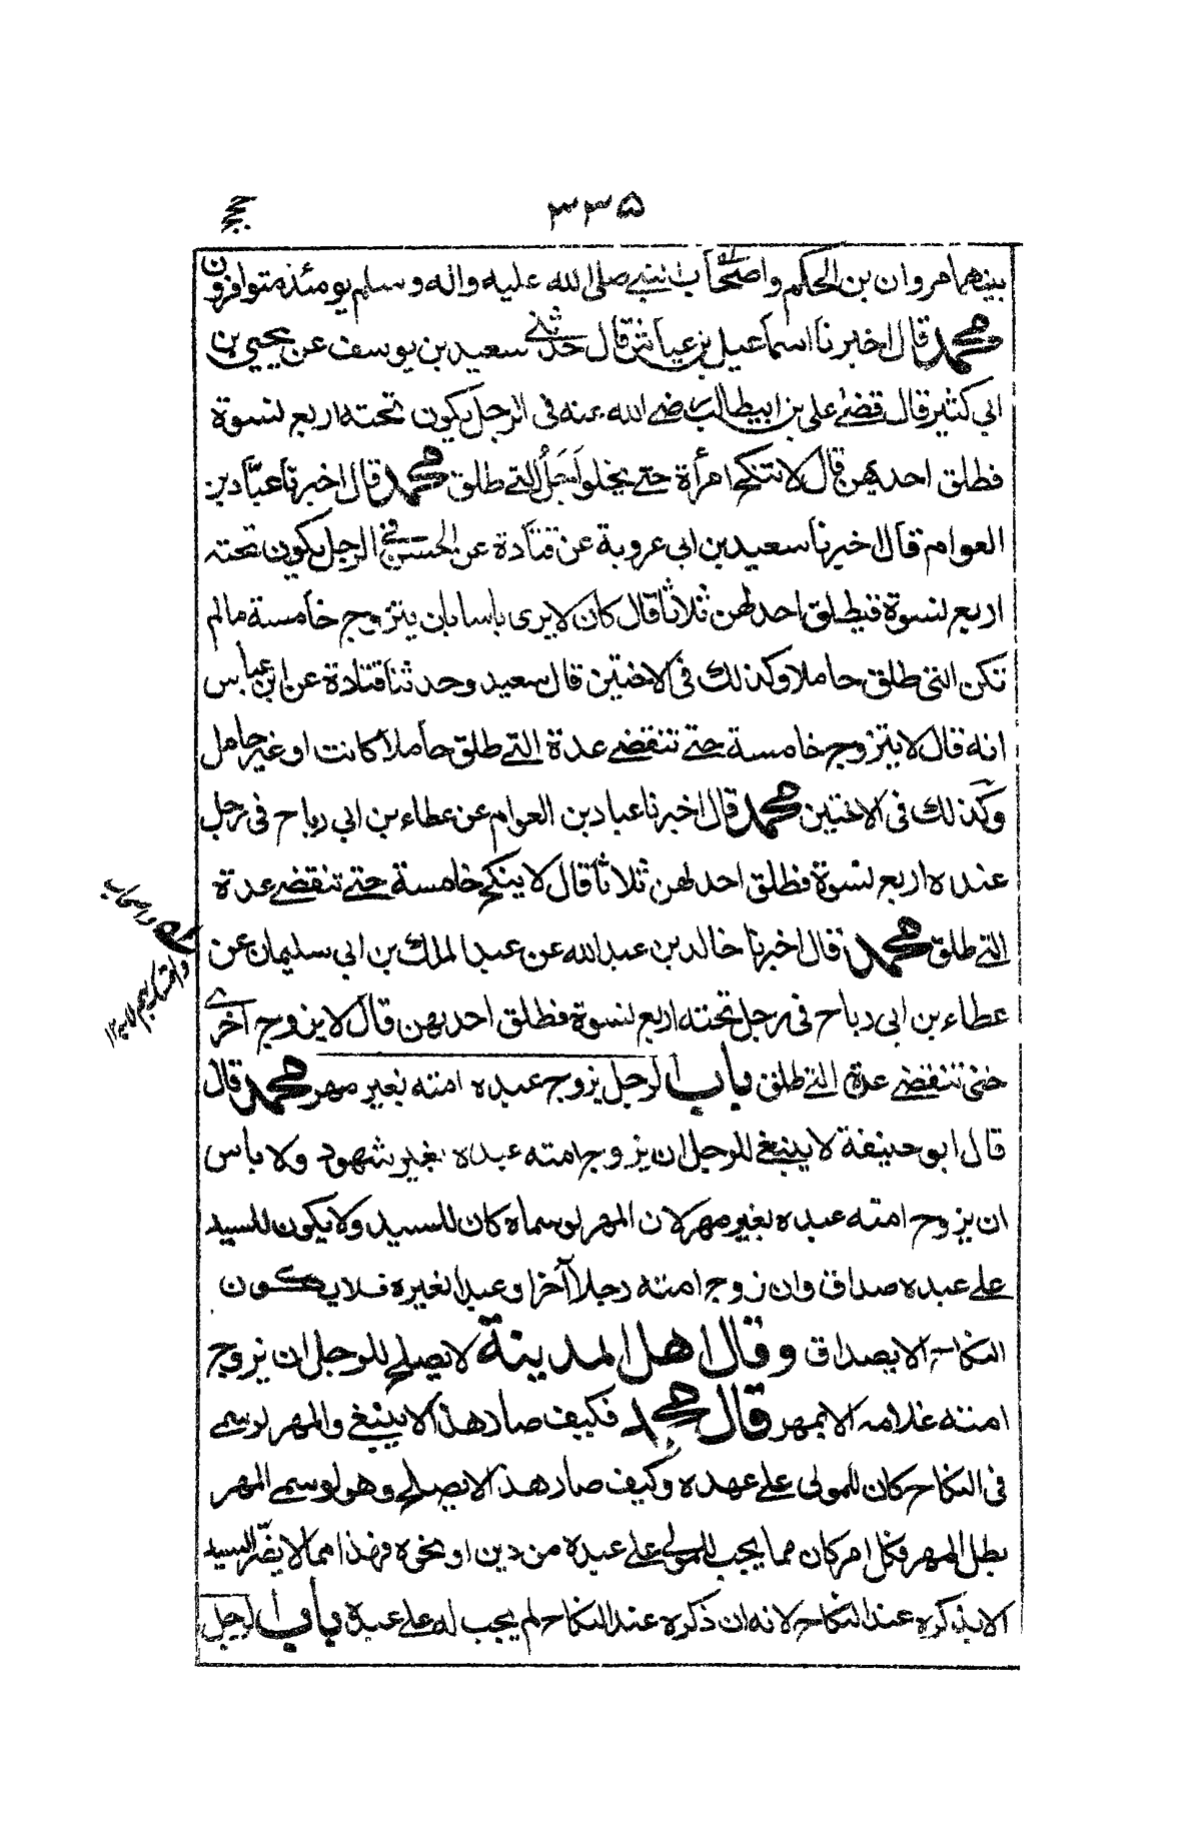 ۳۳۵
بينهما مروان بن الحكم واصحاب النبي صلى الله عليه واله وسلم يومئذ متوافرون
محمد قال اخبرنا اسماعيل بن عياش قال حدثني سعيد بن يوسف عن يحيى بن
ابي كثير قال قضى علي بن ابيطالب رضي الله عنه في الرجل يكون تحته اربع نسوة
فطلق احديهن قال لا تنكح امرأة حتى يخلو اجل التي طلق محمد قال اخبرنا عباد بن
العوام قال اخبرنا سعيد بن ابي عروبة عن قتادة عن الحسن في الرجل يكون تحته
اربع نسوة فيطلق احدلهن ثلاثا قال كان لا يرى باسا بان يتزوج خامسة ما لم
تكن التي طلق حاملا وكذلك في الاختين قال سعيد وحدثنا قتادة عن ابن عباس
انه قال لا يتزوج خامسة حتى تنقضي عدة التي طلق حاملا كانت او غير حامل
وكذلك في الاختين محمد قال اخبرنا عباد بن العوام عن عطاء بن ابي رباح في رجل
عنده اربع نسوة فطلق احدلهن ثلاثا قال لا ينكح خامسة حتى تنقضي عدة
التي طلق محمد قال اخبرنا خالد بن عبد الله عن عبد الملك بن ابي سليمان عن
عطاء بن ابي رباح في رجل تحته اربع نسوة فطلق احديهن قال لا يزوج اخرى
حتى تنقضي عدة التي طلق باب الرجل يزوج عبده امته بغير مهر محمد قال
قال ابو حنيفة لا ينبغي للرجل ان يزوج امته عبده بغير شهود ولا باس
ان يزوج امته عبده بغير مهر لان المهر لو سماه كان للسيد ولا يكون للسيد
على عبده صداق وان زوج امته رجلا آخرا وعبدا لغيره فلا يكون
النكاح الا بصداق وقال اهل المدينة لا يصلح للرجل ان يزوج
امته غلامه الا بمهر قال محمد فكيف صار هذا لا ينبغي والمهر لو سمي
في النكاح كان للمولى على عهده وكيف صار هذا لا يصلح وهو لو سمي المهر
بطل المهر فكل امر كان مما يجب للمولى على عبده من دين او نحوه فهذا مما لا يضر السيد
الا يذكره عند النكاح لانه ان ذكره عند النكاح لم يجب له على عبده باب الرجل